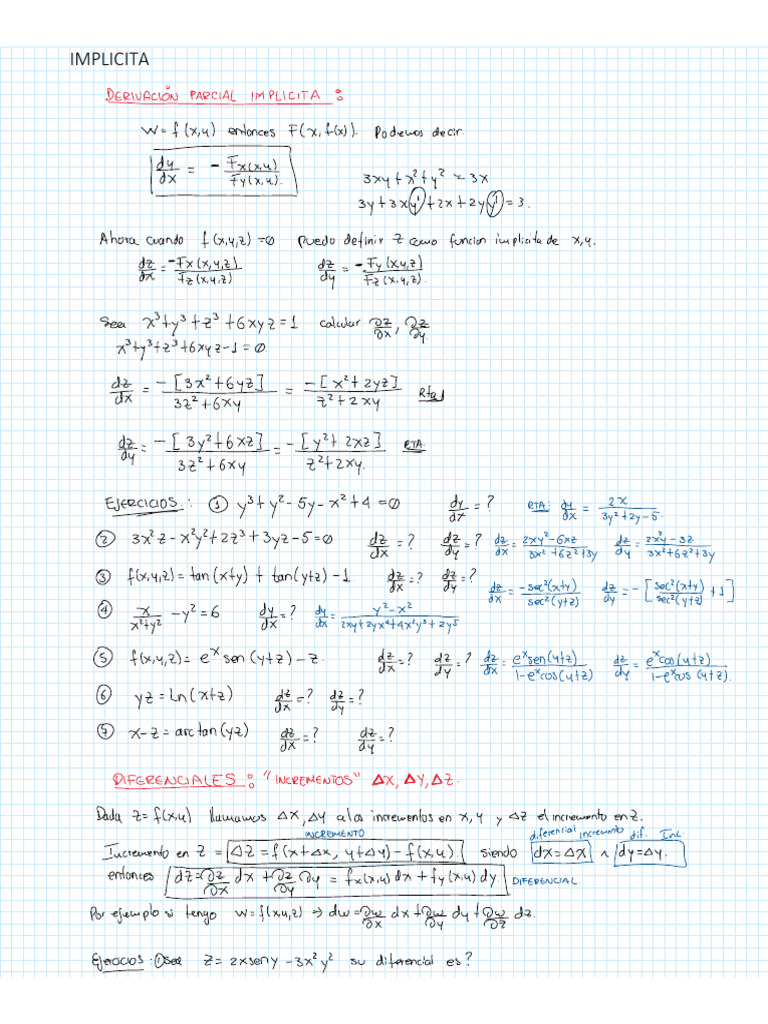 IMPLICITA
DERIVACIÓN PARCIAL IMPLICITA :
W = f(x,y) entonces F(x, f(x)). Podemos decir.
dy/dx = - Fx(x,y)/Fy(x,y).
3xy + x² + y² = 3x
3y + 3x y' + 2x + 2y y' = 3.
Ahora cuando f(x,y,z) = 0 puedo definir z como funcion implicita de x,y.
dz/dx = -Fx(x,y,z)/Fz(x,y,z) dz/dy = -Fy(x,y,z)/Fz(x,y,z).
Sea x³+y³+z³+6xyz = 1 calcular ∂z/∂x, ∂z/∂y.
x³+y³+z³+6xyz-1 = 0.
dz/dx = -[3x²+6yz]/3z²+6xy = -[x²+2yz]/z²+2xy Rta
dz/dy = -[3y²+6xz]/3z²+6xy = -[y²+2xz]/z²+2xy. RTA.
EJERCICIOS : ① y³+y²-5y-x²+4=0 dy/dx = ? RTA: dy/dx = 2x/3y²+2y-5.
② 3x²z-x²y²+2z³+3yz-5=0 dz/dx = ? dz/dy = ? dz/dx = 2xy²-6xz/3x²+6z²+3y dz/dy = 2x²y-3z/3x²+6z²+3y
③ f(x,y,z) = tan(x+y) + tan(y+z) -1 dz/dx = ? dz/dy = ? dz/dx = -sec²(x+y)/sec²(y+z) dz/dy = -[sec²(x+y)/sec²(y+z) +1]
④ x/x²+y² - y² = 6 dy/dx = ? dy/dx = y²-x²/2xy+2yx⁴+4x²y³+2y⁵
⑤ f(x,y,z) = eˣ sen(y+z) - z. dz/dx = ? dz/dy = ? dz/dx = eˣsen(y+z)/1-eˣcos(y+z) dz/dy = eˣcos(y+z)/1-eˣcos(y+z).
⑥ yz = Ln(x+z) dz/dx = ? dz/dy = ?
⑦ x-z = arctan(yz) dz/dx = ? dz/dy = ?
DIFERENCIALES : "INCREMENTOS" Δx, Δy, Δz.
Dada z = f(x,y) llamamos Δx, Δy a los incrementos en x, y y Δz el incremento en z.
INCREMENTO diferencial incremento dif. Inc.
Incremento en z = Δz = f(x+Δx, y+Δy) - f(x,y) siendo dx = Δx ∧ dy = Δy.
entonces dz = ∂z/∂x dx + ∂z/∂y ∂y = fx(x,y) dx + fy(x,y) dy. DIFERENCIAL
Por ejemplo si tengo w = f(x,y,z) ⇒ dw = ∂w/∂x dx + ∂w/∂y dy + ∂w/∂z dz.
Ejercicios : ① sea z = 2xseny - 3x²y² su diferencial es ?